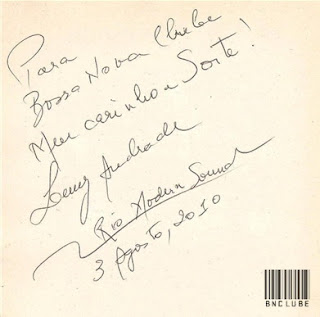 Para
Bossa Nova Clube
Meu carinho e Sorte!
Leny Andrade
Rio Modern Sound
3 Agosto, 2010
BNCLUBE